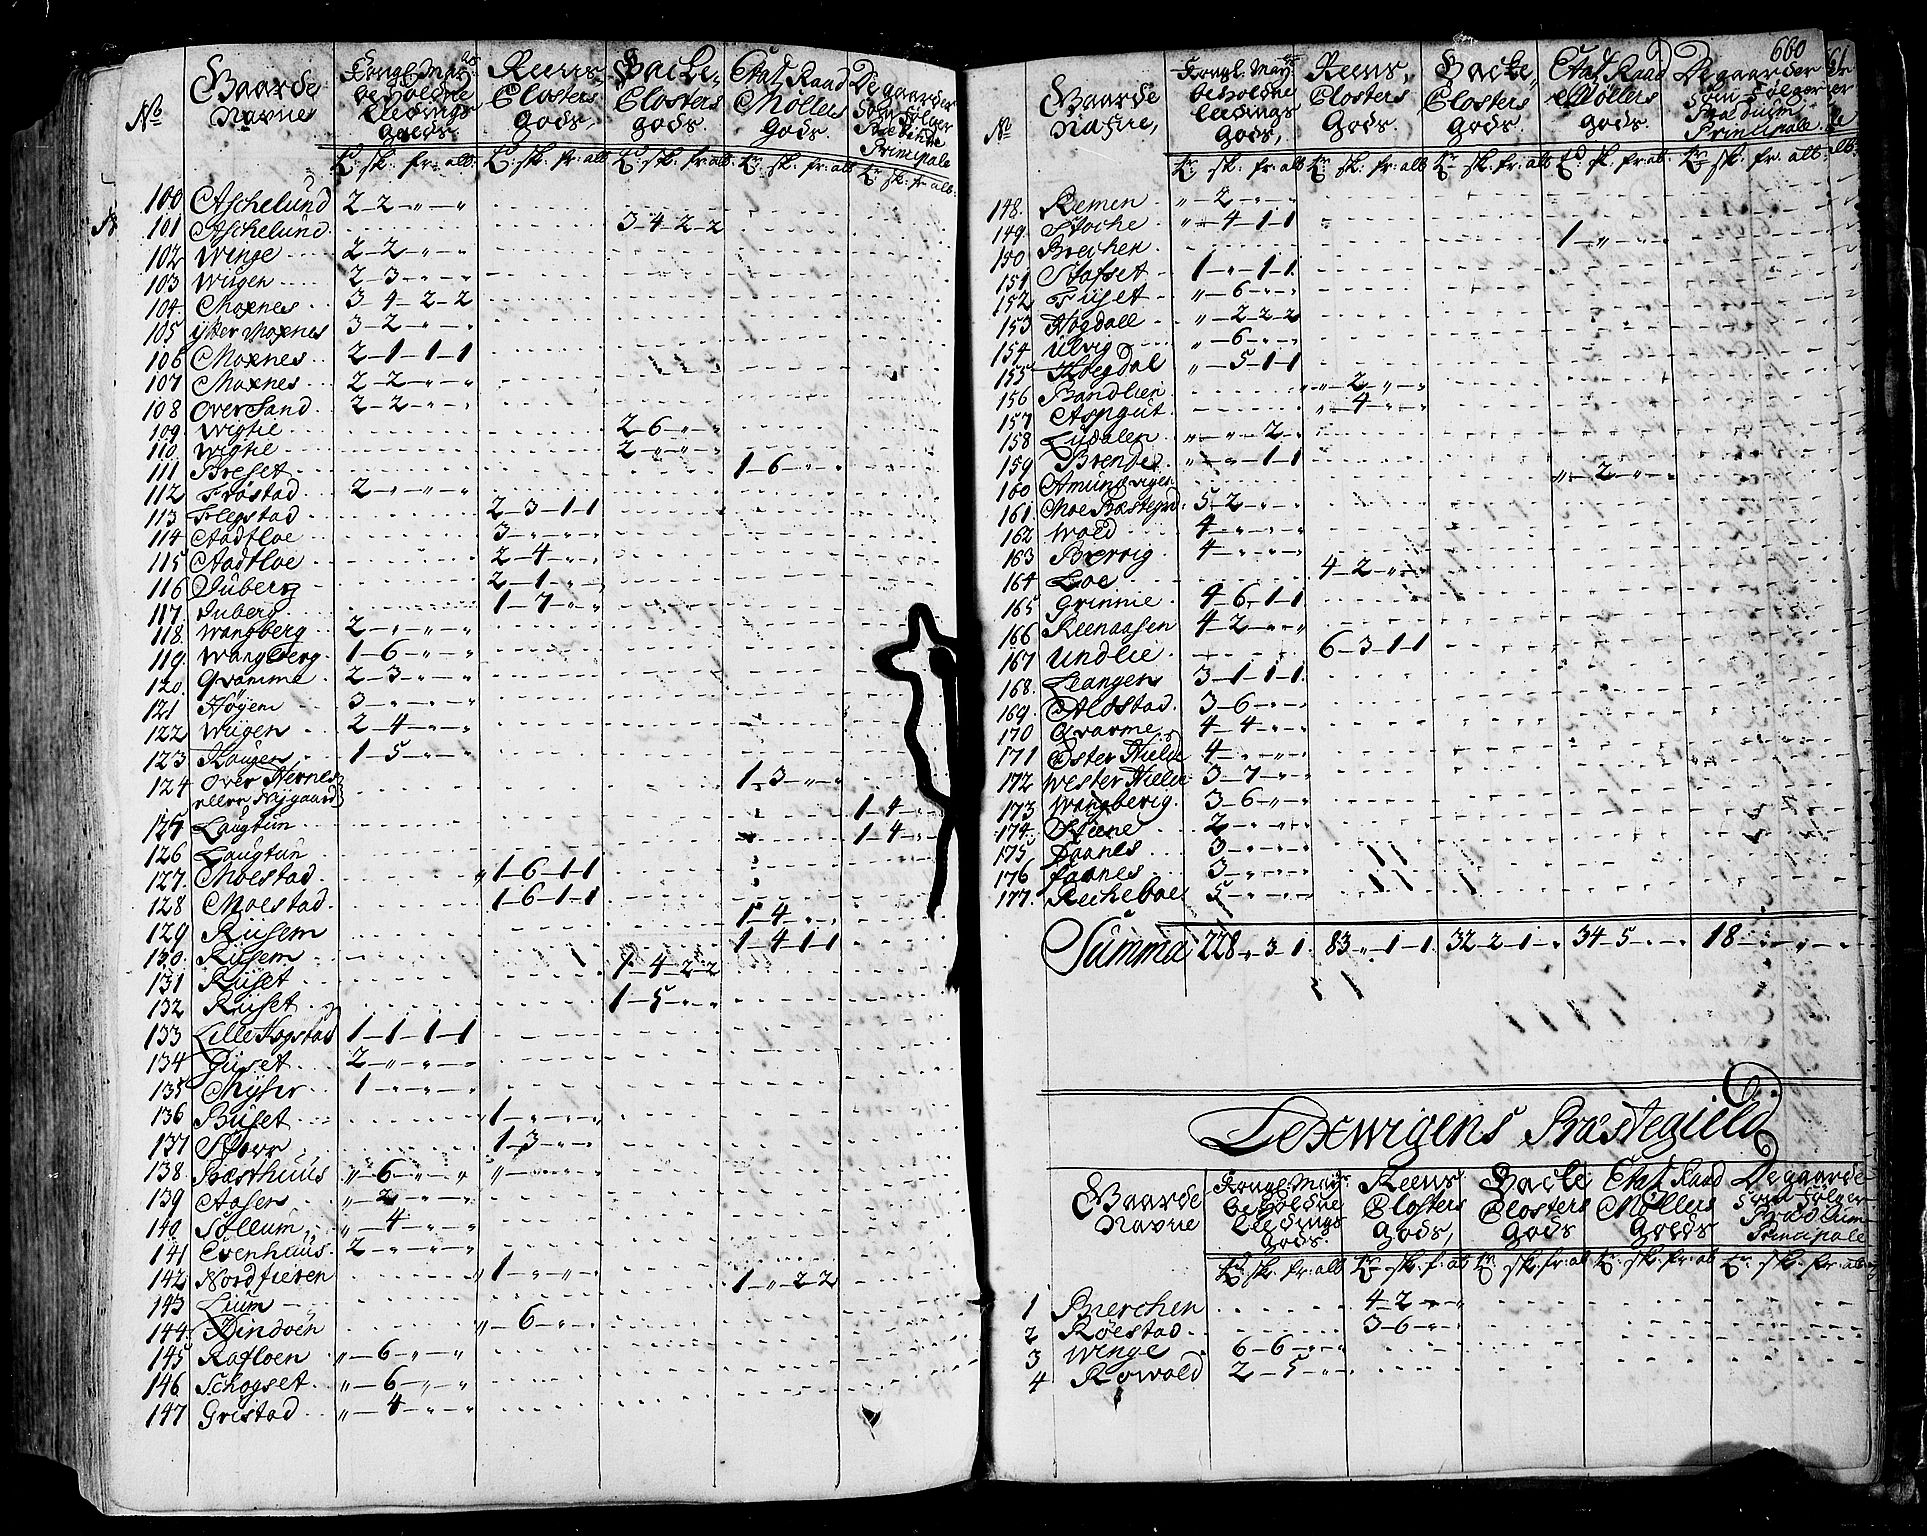 No
Gaarde Navne
Kongl. May: beholdne Leedings Gods.
Reens Closters Gods,
Backe, Closters Gods.
Etats Raad Möllers Gods.
De gaarder som følger Principale
100 Aschelund 2 - 2 - " - "
101 Aschelund 3 - 4 - 2 - 2
102 Winge 2 - 2 - " - "
103 Wiigen 2 - 3 - " - "
104 Moxnes 3 - 4 - 2 - 2
105 ytter Moxnes 3 - 2 - " - "
106 Moxnes 2 - 1 - 1 - 1
107 Moxnes 2 - 2 - " - "
108 Over Sand 2 - 2 - " - "
109 Wigtie 2 - 6 - " - "
110 Wigtie 2 - " - " - "
111 Breset 1 - 6 - " - "
112 Frostad 2 - " - " - "
113 Flegstad 2 - 3 - 1 - 1
114 Aadtloe 3 - " - " - "
115 Aadtloe 2 - 4 - " - "
116 Duberg 2 - 1 - " - "
117 Duberg 1 - 7 - " - "
118 Wangberg 2 - " - " - "
119 Wangberg 1 - 6 - " - "
120 Qvamme 2 - 3 - " - "
121 Høyem 3 - " - " - "
122 Wiigen 2 - 4 - " - "
123 Haugen 1 - 5 - " - "
124 Over Hernes 1 - 3 - " - "
eller Nygaard
125 Laugtun 1 - 4 - "
126 Laugtun 1 - 4 - "
127 Moestad " 1 - 6 - 1 - 1
128 Moestad 1 - 6 - 1 - 1
129 Riisem 1 - 4 - " - "
130 Riisem 1 - 4 - 1 - 1
131 Riiset 1 - 4 - 2 - 2
132 Riiset 1 - 5 - " - "
133 Lille Hogstad 1 - 1 - 1 - 1
134 Giiset 2 - " - " - "
135 Myhr 1 - " - " - "
136 Buset 1 - " - " - "
137 1 - 3 - " - "
138 Præsthuus " - 6 - " - "
139 Aasen " - 2 - " - "
140 Søllium " - 4 - " - "
141 Evenhaus 2 - " - " - "
142 Nordtieren 1 - " - " - "
143 Lium 1 - " - 2 - 2
144 Hindoen " - 6 - " - "
145 Rafloen " - 6 - " - "
146 Schogset " - 6 - " - "
147 Gristad " - 4 - " - "
660
No
Gaarde Nafne,
Kongl. May: beholdne Leedings Gods,
Reens, Closters Gods.
Backe, Closters Gods.
Etats Raad Möllers Gods.
De gaarder som følger Prædium Principale
148 Remen " - 2 - " - "
149 Stoche " - 4 - 1 - 1
150 Brechen 1 - " - " - "
151 Stafset 1 - " - 1 - 1
152 Fuset " - 6 - " - "
153 Hogdall " - 2 - 2 - 2
154 Ulvig " - 6 - " - "
155 Hoegdal " - 5 - 1 - 1
156 Bandlien " - 2 - " - "
157 " - 4 - " - "
158 Lysdalen " - " - 2 - "
159 Brende " - " - 1 - 1
160 Amundvigen " - 2 - " - "
161 Moe Præstegrd. 5 - 2 - " - "
162 Wold 4 - " - " - "
163 Berrig 4 - " - " - "
164 Loe 4 - 2 - " - "
165 Grinnie 4 - 6 - 1 - 1
166 Reenaasen 4 - 2 - " - "
167 Undlie 6 - 3 - 1 - 1
168 Leangen 3 - 1 - 1 - 1
169 Alstad 3 - 6 - " - "
170 Qvamme 4 - 4 - " - "
171 Øster Hielde 4 - " - " - "
172 Wester Hielde 3 - 7 - " - "
173 Wangberig 3 - 6 - " - "
174 Steene 2 - " - " - "
175 Faanes 3 - " - " - "
176 Faanes 3 - " - " - "
177 Reicheboe 5 - " - " - "
Summa 228 " 3 - 1 83 - " 1 - 1 32 - 2 - 1 - " 34 - 5 - " - " 18 - " - " - "
Lexwigens Præstegield
Gaarde Navne
Kongl. May: beholdne Leedings Gods.
Reens Closters Gods,
Backe Closters Gods
Etats Raad Möllers Gods
De gaarde som følger Prædium Principale
1 Bierchen 4 - 2 - " - "
2 Røestad 3 - 6 - " - "
3 Winge 6 - 6 - " - "
4 Rowold 2 - 5 - " - "